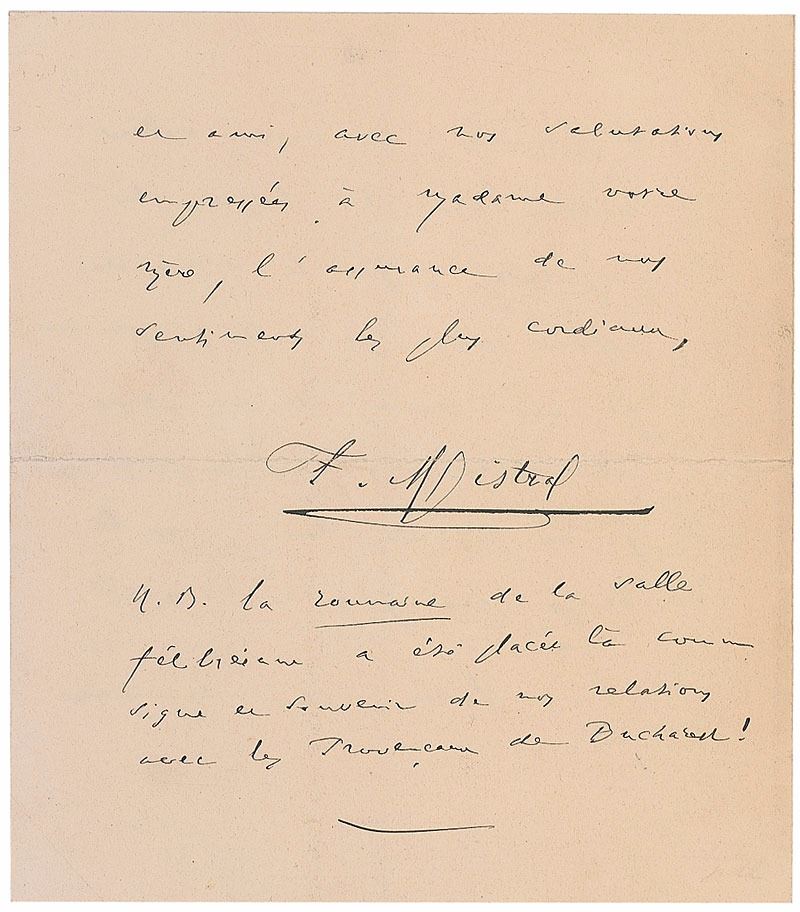 et ami, avec nos salutations
empressées à Madame votre
mère, l'assurance de nos
sentiments les plus cordiaux,
F. Mistral
N. B. la roumaine de la salle
félibréenne a été placée là comme
signe et souvenir de nos relations
avec les Provençaux de Bucharest!